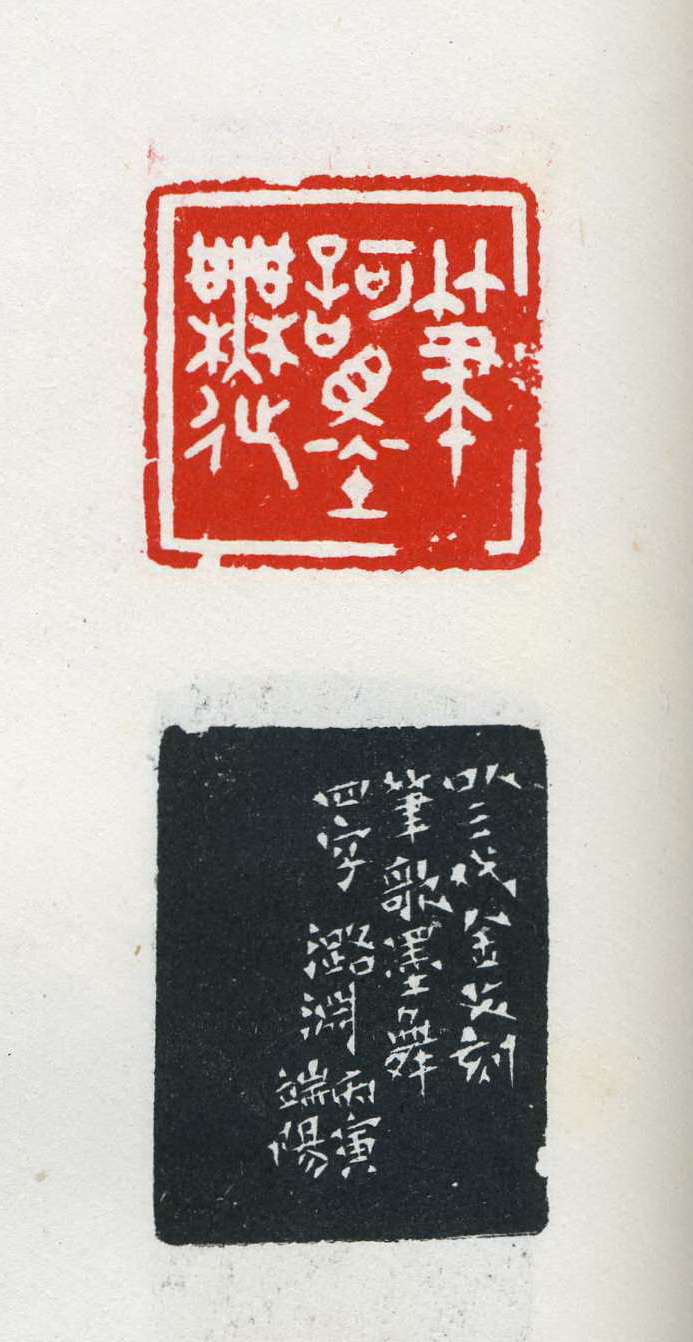 筆
歌墨
舞
以三代金文刻
筆歌墨舞
四字 潞淵 丙寅
端陽